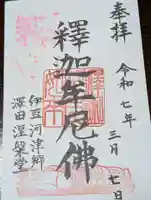 奉拝
令和七年
三月七日
釋迦牟尼佛
伊豆河津郷
澤田涅槃堂